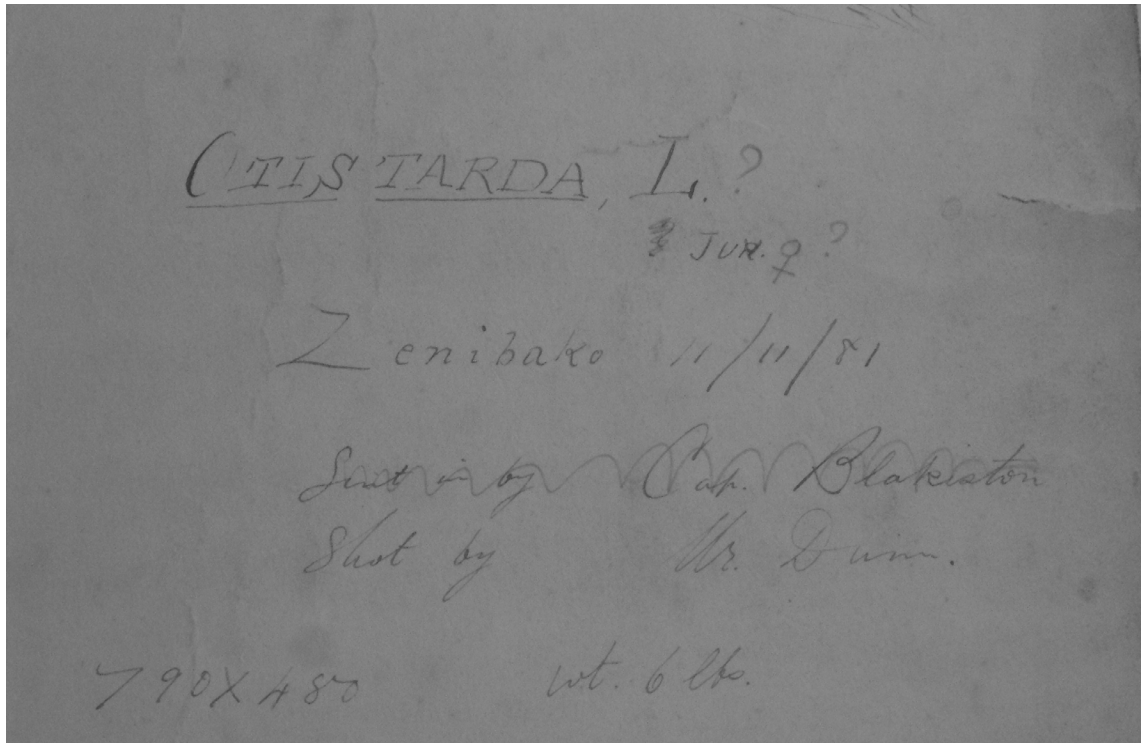 OTIS TARDA, L. ?
JUN. ♀ ?
Zenibako 11/11/81
Sent in by Cap. Blakiston
Shot by Mr. Dunn.
790X480 wt. 6 lbs.